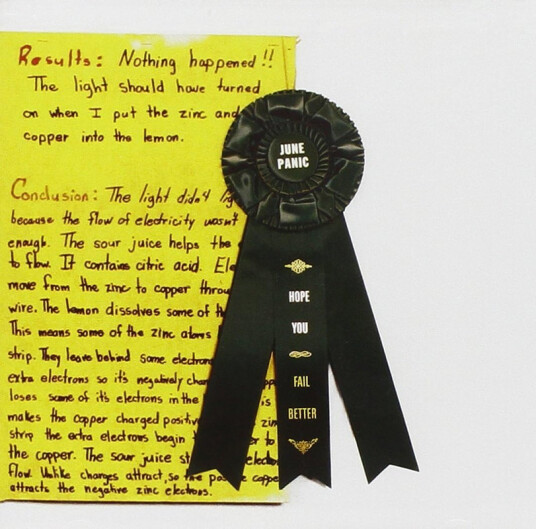 Results: Nothing happened!!
The light should have turned
on when I put the zinc and
copper into the lemon.
Conclusion: The light didn't lig
because the flow of electricity wasn't
enough. The sour juice helps the
to flow. It contains citric acid. Ele
move from the zinc to copper throu
wire. The lemon dissolves some of th
This means some of the zinc atoms
strip. They leave behind some electron
extra electrons so it's negatively char
loses some of its electrons in the is
makes the copper charged positiv zin
strip the extra electrons begin to
the copper. The sour juice st electro
flow. Unlike charges attract, so the pos coppe
attracts the negative zinc electrons.
JUNE
PANIC
HOPE
YOU
FAIL
BETTER